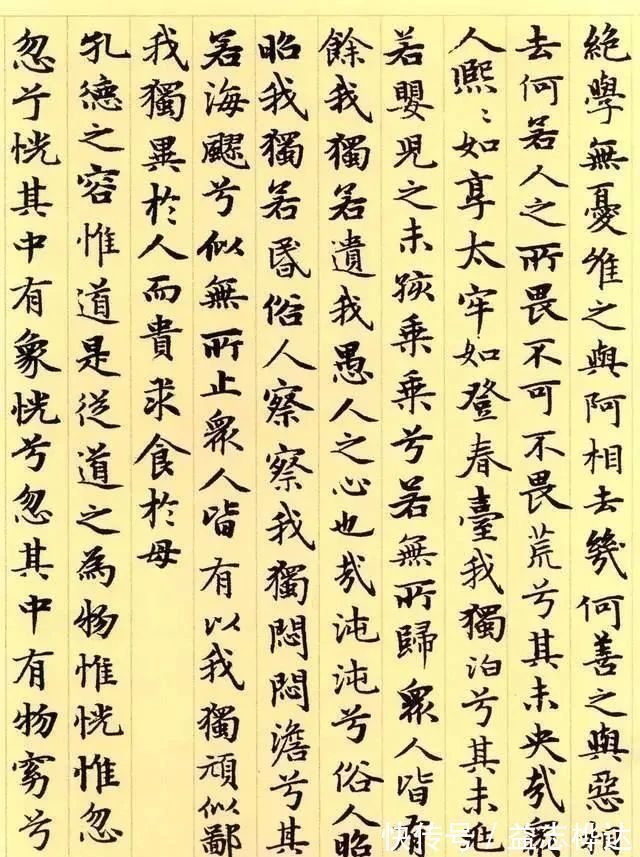 絕學無憂維之與阿相去幾何善之與惡
去何若人之所畏不可不畏荒兮其未央哉眾
人熙〻如享太牢如登春臺我獨泊兮其未兆
若嬰兒之未孩乘乘兮若無所歸眾人皆有
餘我獨若遺我愚人之心也哉沌沌兮俗人昭
昭我獨若昏俗人察察我獨悶悶澹兮其
若海飂兮似無所止眾人皆有以我獨頑似鄙
我獨異於人而貴求食於母
孔德之容惟道是從道之為物惟恍惟忽
忽兮恍其中有象恍兮忽其中有物窈兮
快传号 / 益志桦达